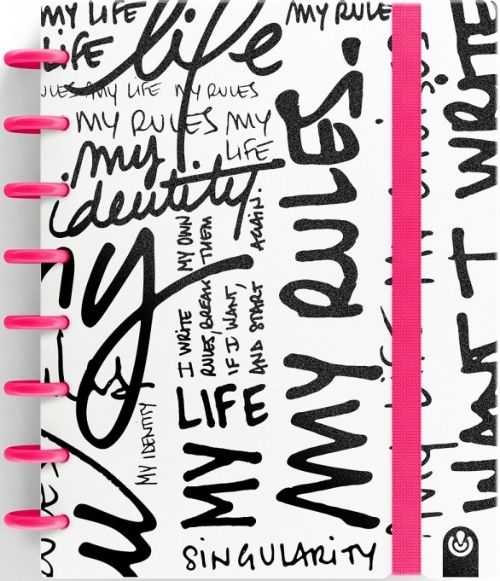 MY LIFE
LIFE
life
MY RULE
MY LIFE MY RULES
MY RULES MY
LIFE
my
identity.
my
I WRITE MY OWN
RULES, BREAK THEM
IF I WANT,
AND START AGAIN.
MY IDENTITY
MY
LIFE
MY RULES.
SINGULARITY
WANT WRITE